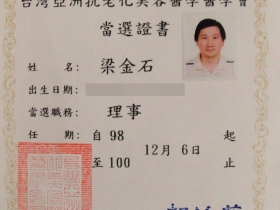 台灣亞洲抗老化美容醫學醫學會
當選證書
姓名：梁金石
出生日期：
當選職務：理事
任期：自98 起
至100 12月6日 止